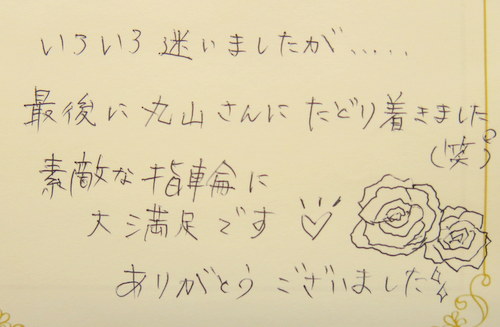 いろいろ迷いましたが.....
最後に丸山さんにたどり着きました
(笑)
素敵な指輪に
大満足です♡
ありがとうございました